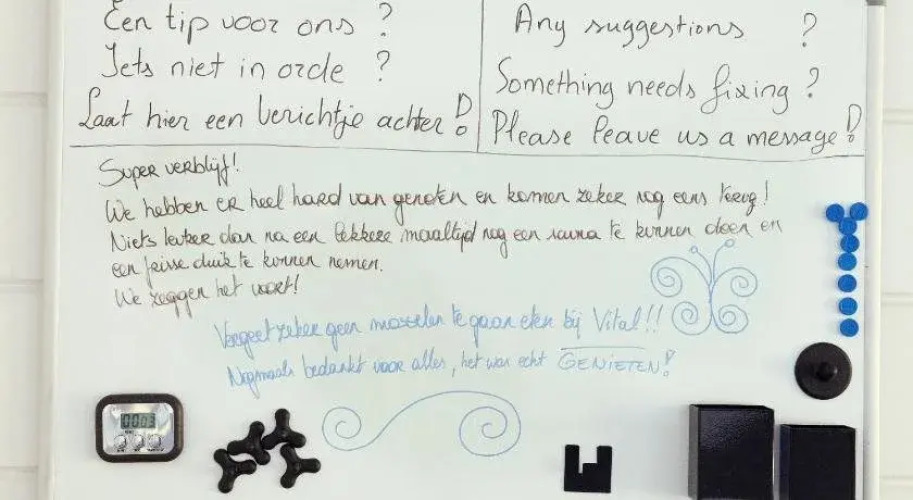 Een tip voor ons ?
Iets niet in orde ?
Laat hier een berichtje achter !
Any suggestions ?
Something needs fixing ?
Please leave us a message !
Super verblijf!
We hebben er heel hard van genoten en komen zeker nog eens terug!
Niets leuker dan na een lekkere maaltijd nog een sauna te kunnen doen en
een frisse duik te kunnen nemen.
We zeggen het voort!
Vergeet zeker geen mosselen te gaan eten bij Vital!!
Nogmaals bedankt voor alles, het was echt GENIETEN!
0003